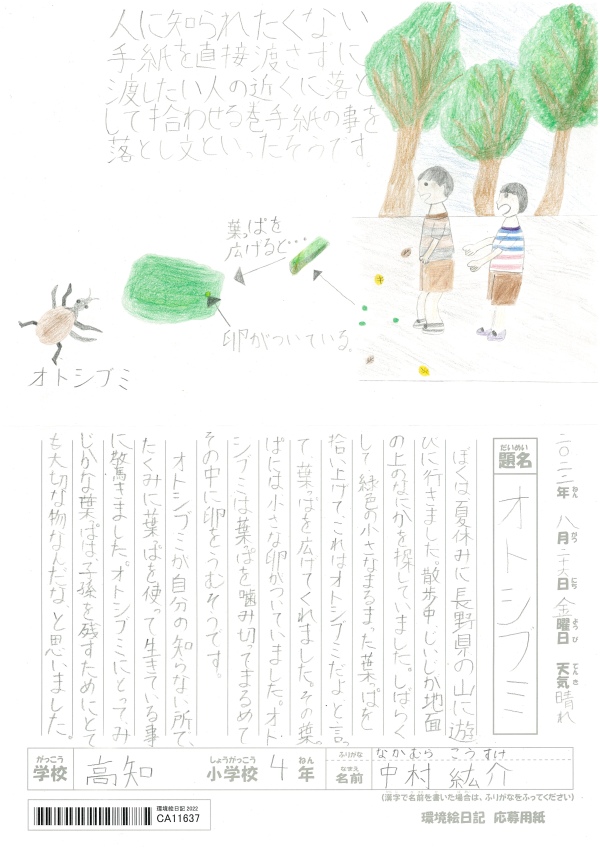 人に知られたくない
手紙を直接渡さずに
渡したい人の近くに落と
して拾わせる巻手紙の事を
落とし文といったそうです。
葉っぱを
広げると…
卵がついている。
オトシブミ
二〇二二年 八月二十六日 金曜日 天気 晴れ
ねん がつ にち ようび てんき
だいめい
題名 オトシブミ
ぼくは夏休みに長野県の山に遊
びに行きました。散歩中じいじが地面
の上のなにかを探していました。しばらく
して、緑色の小さなまるまった葉っぱを
拾い上げて、これはオトシブミだよと言っ
て、葉っぱを広げてくれました。その葉っ
ぱには小さな卵がついていました。オト
シブミは葉っぱを噛み切ってまるめて
その中に卵をうむそうです。
オトシブミが自分の知らない所で、
たくみに葉っぱを使って生きている事
に驚きました。オトシブミにとって、み
じかな葉っぱは、子孫を残すためにとて
も大切な物なんだな、と思いました。
がっこう しょうがっこう ねん
学校 高知 小学校 4 年
ふりがな なかむら こうすけ
なまえ
名前 中村 紘介
(漢字で名前を書いた場合は、ふりがなをふってください)
環境絵日記 2022
CA11637
環境絵日記 応募用紙